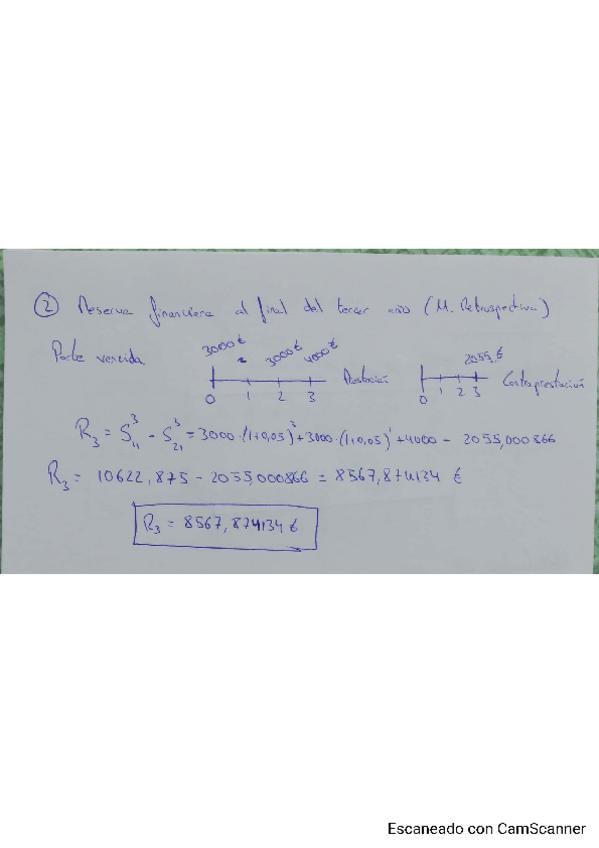 ② Reserva financiera al final del tercer año (M. Retrospectivo)
Parte vencida
3000€ 3000€ 4000€
0 1 2 3
Prestación
2055€
0 1 2 3
Contraprestación
R₃ = S₁₁³ - S₂₁³ = 3000·(1+0,05)³ + 3000·(1+0,05)¹ + 4000 - 2055,000866
R₃ = 10622,875 - 2055,000866 = 8567,874134 €
R₃ = 8567,874134 €
Escaneado con CamScanner